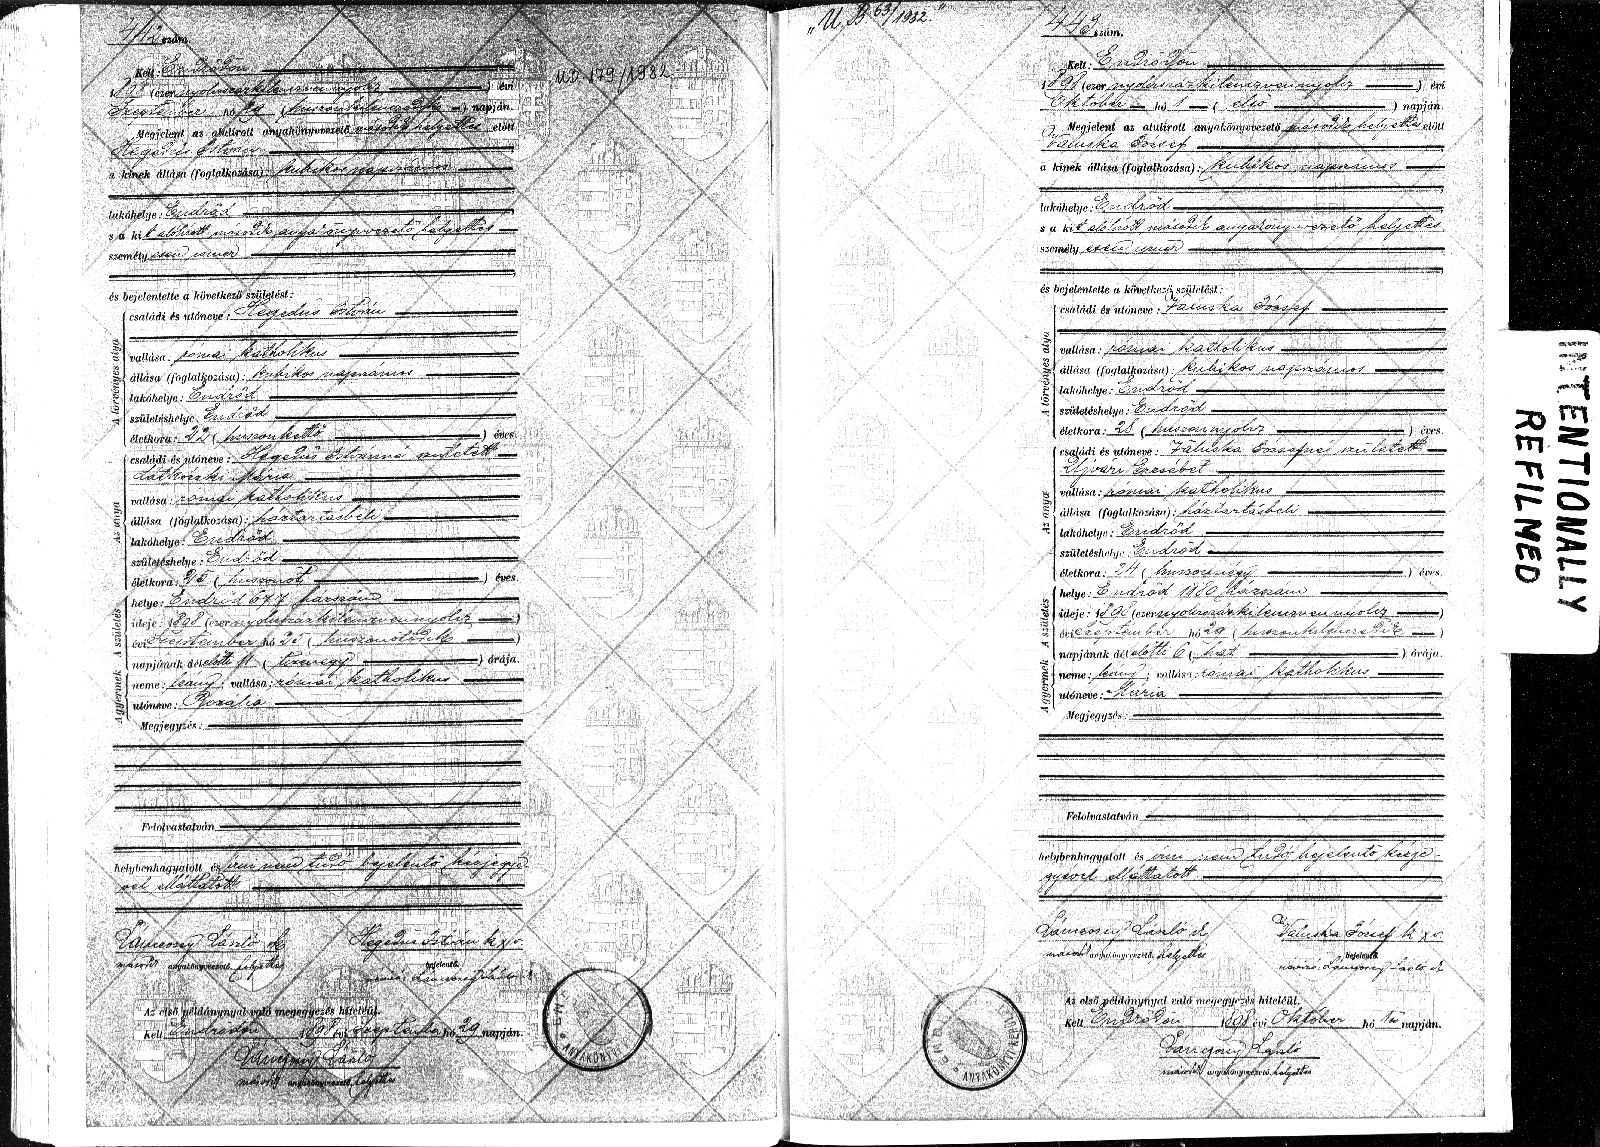 442 szám.
UB 179/1982
Kelt: Endrődön
1898 (ezer nyolcszázkilencvennyolcz) évi
Szeptember hó 29 (huszonkilenczedik) napján.
Megjelent az alulirott anyakönyvvezető második helyettes előtt
Hegedüs István
a kinek állása (foglalkozása): kubikos napszámos
lakóhelye: Endrőd
s a kit alólirott második anyakönyvvezető helyettes
személyesen ismer
és bejelentette a következő születést:
A törvényes atya
családi és utóneve: Hegedüs István
vallása: római katholikus
állása (foglalkozása): kubikos napszámos
lakóhelye: Endrőd
születéshelye: Endrőd
életkora: 22 (huszonkettő) éves.
Az anya
családi és utóneve: Hegedüs Istvánné született
Mária
vallása: római katholikus
állása (foglalkozása): háztartásbeli
lakóhelye: Endrőd
születéshelye: Endrőd
életkora: 25 (huszonöt) éves.
A születés
helye: Endrőd 677 házszám
ideje: 1898 (ezernyolczszázkilenczvennyolcz)
évi Szeptember hó 25 (huszonötödik)
napjának délelőtti 11 (tizenegy) órája.
A gyermek
neme: leány; vallása: római katholikus
utóneve: Rozália
Megjegyzés:
Felolvastatván
helybenhagyatott és irni nem tudó bejelentő kézjegyé
vel elláttatott
László h.
Hegedüs István k x v.
második anyakönyvvezető helyettes
bejelentő.
Az első példánynyal való megegyezés hiteléül.
Kelt Endrődön 1898 évi szeptember hó 29 napján.
László
második anyakönyvvezető helyettes
"U. B 63/1982."
443 szám.
Kelt: Endrődön
1898 (ezer nyolczszázkilenczvennyolcz) évi
Oktober hó 1 (első) napján.
Megjelent az alulirott anyakönyvvezető második helyettes előtt
Valuska József
a kinek állása (foglalkozása): kubikos napszámos
lakóhelye: Endrőd
s a kit alólirott második anyakönyvvezető helyettes
személyesen ismer
és bejelentette a következő születést:
A törvényes atya
családi és utóneve: Valuska József
vallása: római katholikus
állása (foglalkozása): kubikos napszámos
lakóhelye: Endrőd
születéshelye: Endrőd
életkora: 28 (huszonnyolcz) éves.
Az anya
családi és utóneve: Valuska Józsefné született
Ujvári Erzsébet
vallása: római katholikus
állása (foglalkozása): háztartásbeli
lakóhelye: Endrőd
születéshelye: Endrőd
életkora: 24 (huszonnégy) éves.
A születés
helye: Endrőd 1080 házszám
ideje: 1898 (ezernyolczszázkilenczvennyolcz)
évi Szeptember hó 29 (huszonkilenczedik)
napjának délelőtti 6 (hat) órája.
A gyermek
neme: leány; vallása: római katholikus
utóneve: Mária
Megjegyzés:
Felolvastatván
helybenhagyatott és irni nem tudó bejelentő kézje-
gyével elláttatott
László h.
Valuska József k x v.
második anyakönyvvezető helyettes
bejelentő.
Az első példánynyal való megegyezés hiteléül.
Kelt Endrődön 1898 évi Oktober hó 1ső napján.
László
második anyakönyvvezető helyettes
INTENTIONALLY
REFILMED